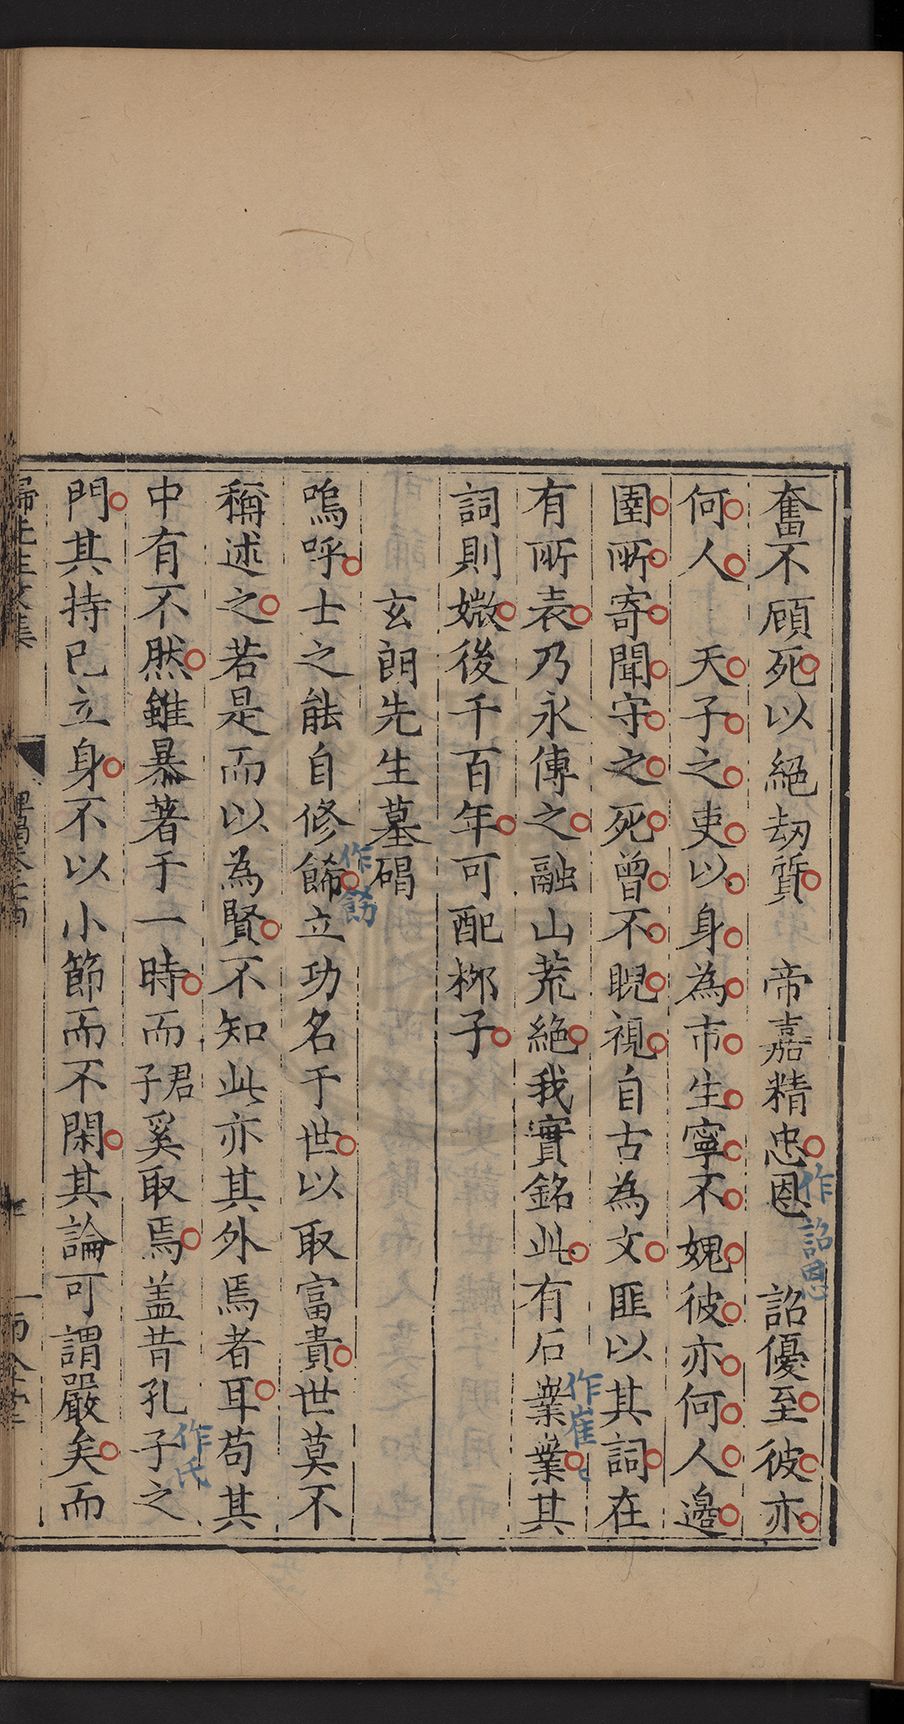 奮不顧死以絕刼質 帝嘉精忠恩 詔優至彼亦
作詔恩
何人 天子之吏以身為市生寧不媿彼亦何人邉
圉所寄聞守之死曾不睨視自古為文匪以其詞在
有所表乃永傳之融山荒絕我實銘此有石業業其
作崔
詞則媺後千百年可配栁子
玄朗先生墓碣
嗚呼士之能自修餙立功名于世以取富貴世莫不
作飭
稱述之若是而以為賢不知此亦其外焉者耳苟其
中有不然雖暴著于一時而君子奚取焉盖昔孔子之
作氏
門其持己立身不以小節而不閑其論可謂嚴矣而